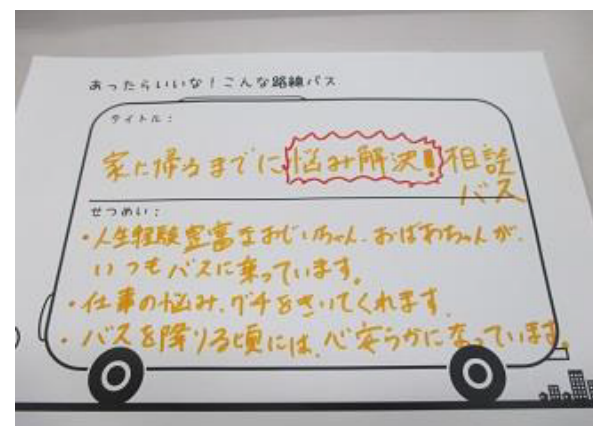 あったらいいな！こんな路線バス
タイトル：
家に帰るまでに悩み解決！相談
バス
せつめい：
・人生経験豊富なおじいちゃん、おばあちゃんが、
いつもバスに乗っています。
・仕事の悩み、グチをきいてくれます。
・バスを降りる頃には、心安らかになっています。